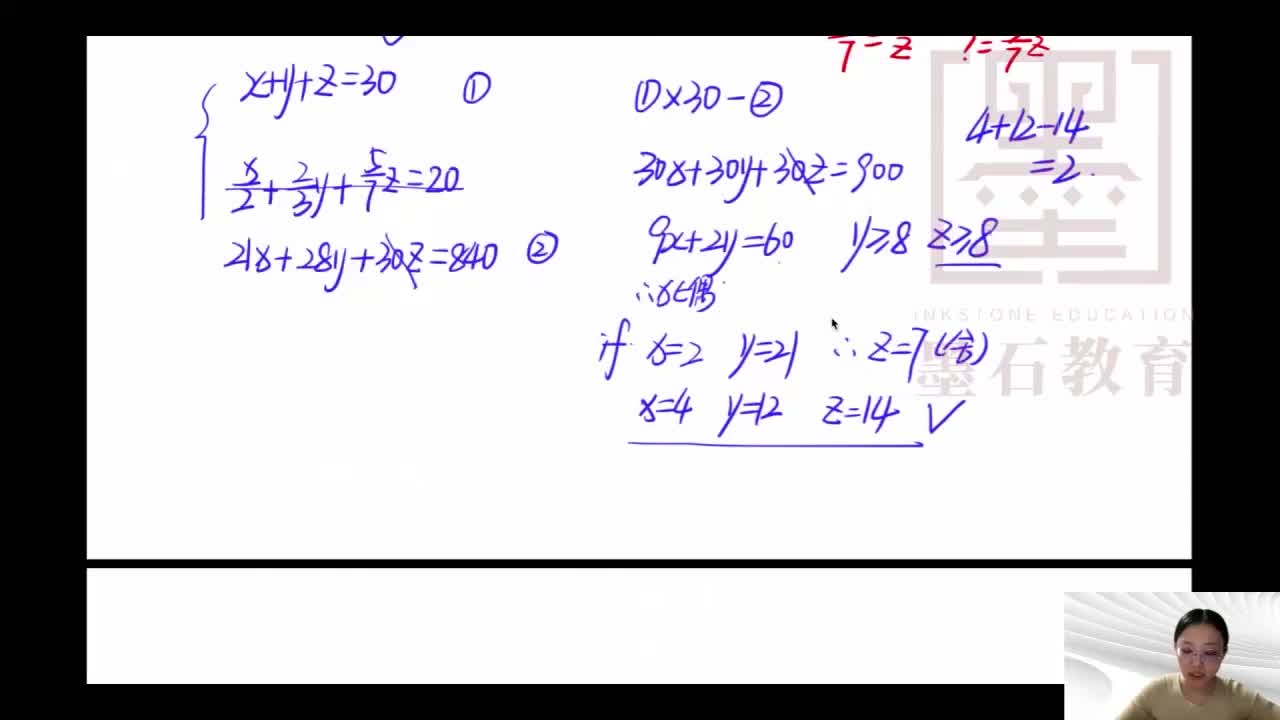 x+y+z=30 ①
x/2+2/3y+5/7z=20
21x+28y+30z=840 ②
7=z ?=7z
①×30-②
30x+30y+30z=900
9x+2y=60 y≥8 z≥8
∴x∈偶
if x=2 y=21 ∴z=7(舍)
x=4 y=12 z=14 ✓
4+12-14
=2.
墨
INKSTONE EDUCATION
墨石教育